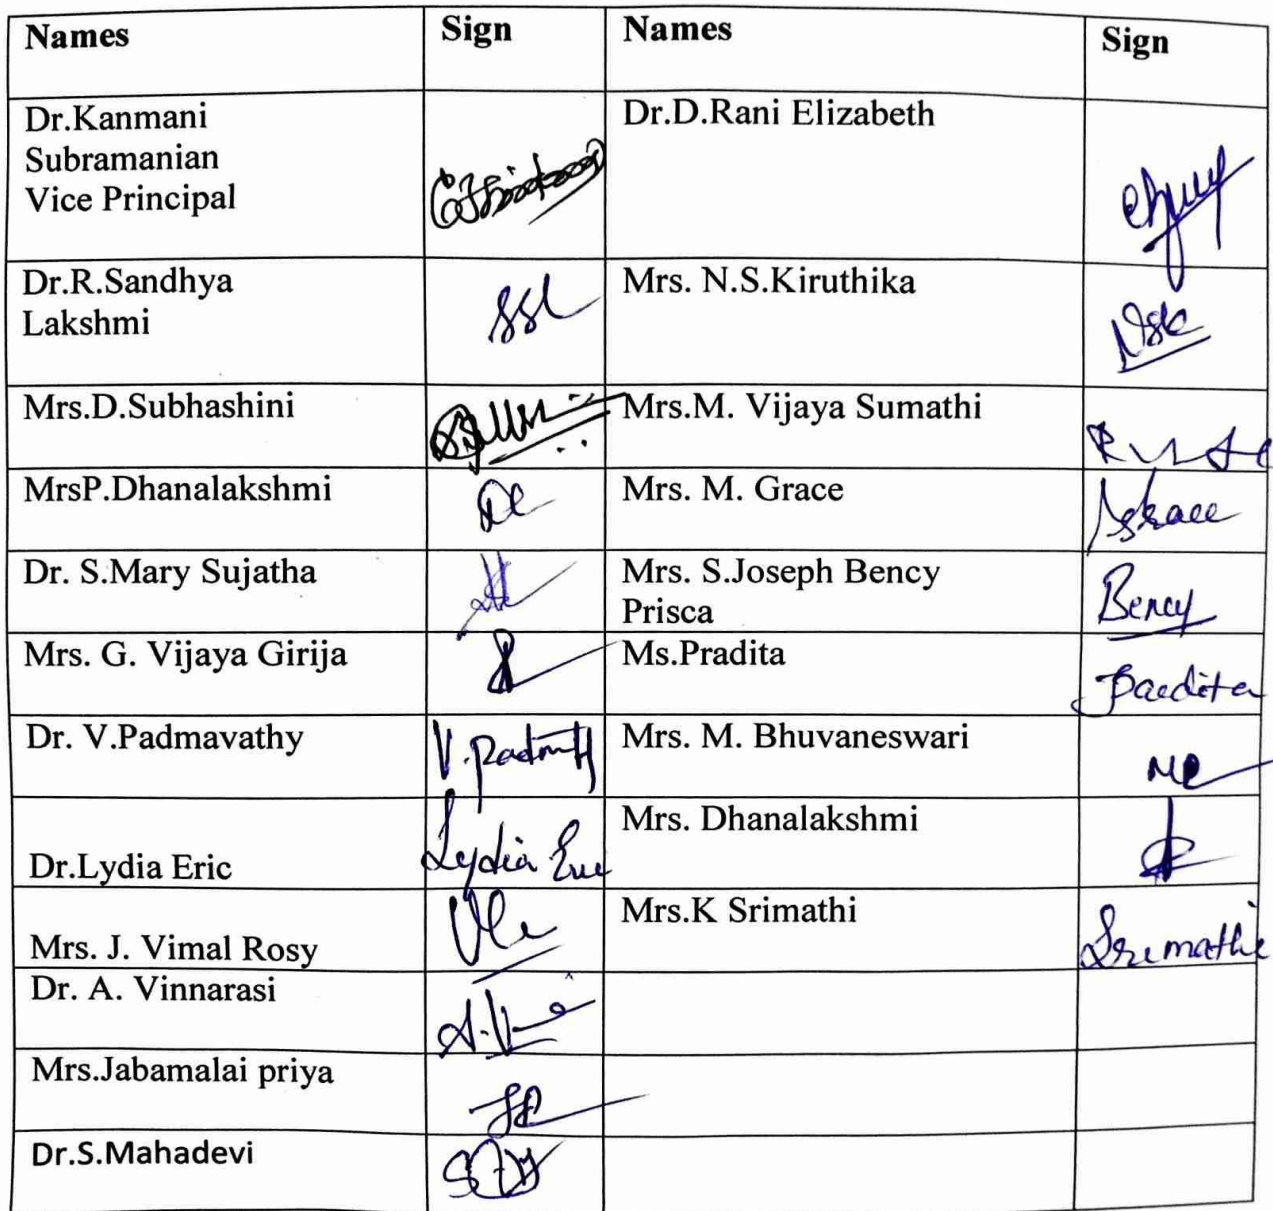 Names Sign Names Sign
Dr.Kanmani
Subramanian
Vice Principal
Dr.D.Rani Elizabeth
Dr.R.Sandhya
Lakshmi
ssl
Mrs. N.S.Kiruthika
Nsk
Mrs.D.Subhashini
Mrs.M. Vijaya Sumathi
MrsP.Dhanalakshmi
Mrs. M. Grace
Dr. S.Mary Sujatha
Mrs. S.Joseph Bency
Prisca
Bency
Mrs. G. Vijaya Girija
Ms.Pradita
Dr. V.Padmavathy
Mrs. M. Bhuvaneswari
Dr.Lydia Eric
Lydia Eric
Mrs. Dhanalakshmi
Mrs. J. Vimal Rosy
Mrs.K Srimathi
Srimathi
Dr. A. Vinnarasi
Mrs.Jabamalai priya
Dr.S.Mahadevi